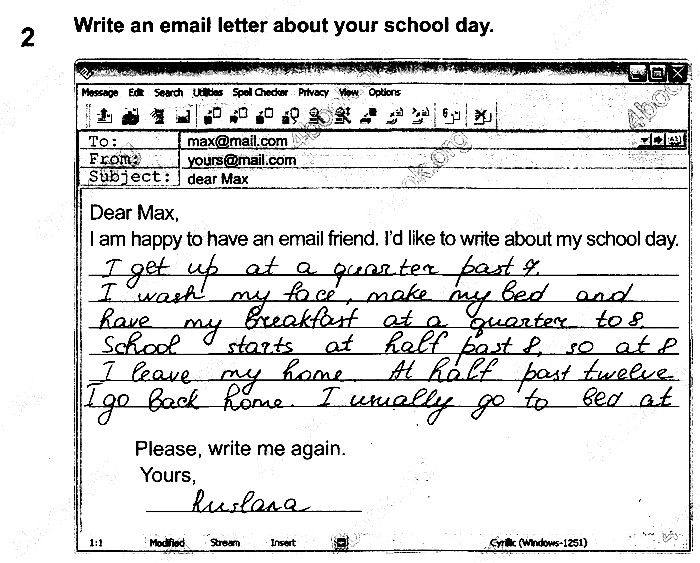 2
Write an email letter about your school day.
Message Edit Search Utilities Spel Checker Privacy View Options
To: max@mail.com
From: yours@mail.com
Subject: dear Max
Dear Max,
I am happy to have an email friend. I'd like to write about my school day.
I get up at a quarter past 7.
I wash my face, make my bed and
have my breakfast at a quarter to 8.
School starts at half past 8, so at 8
I leave my home. At half past twelve
I go back home. I usually go to bed at
Please, write me again.
Yours,
Ruslana
1:1 Modified Stream Insert Cyrillic (Windows-1251)